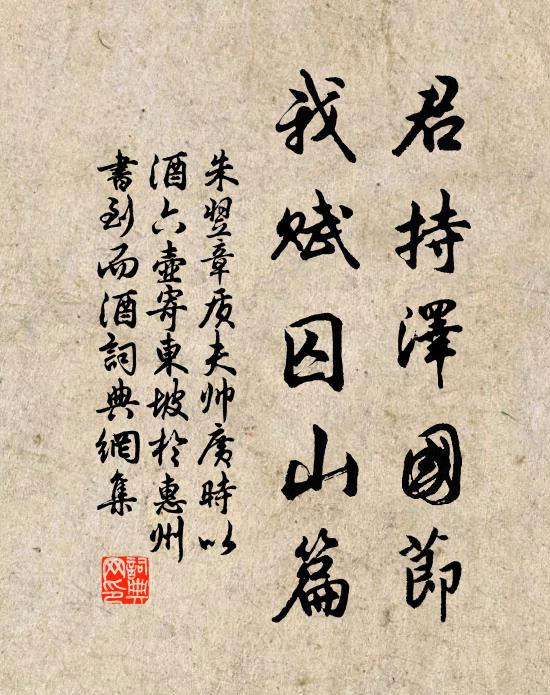 君持澤國節
我賦囚山篇
朱翌章质夫帅廣時以
酒六壺寄東坡於惠州
書到而酒詞典網集
詞典
网印